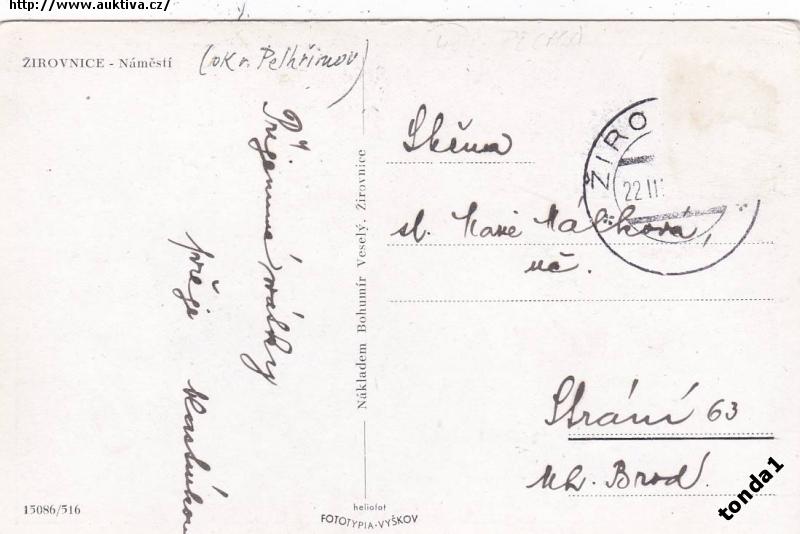 http://www.auktiva.cz/
ŽIROVNICE - Náměstí
(okr. Pelhřimov)
Příjemné svátky
přeje
Nákladem Bohumír Veselý, Žirovnice
sl.
Málková,
uč.
Strání 63
Uh. Brod.
ŽIRO
22 II
15086/516
heliofot
FOTOTYPIA-VYŠKOV
tonda1